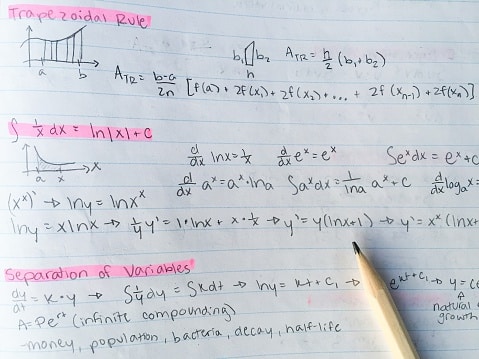 Trapezoidal Rule
b₁ b₂ A_TR = h/2 (b₁+b₂)
h
a b
A_TR = b-a/2n [f(a) + 2f(x₁) + 2f(x₂) + ... + 2f(x_n-1) + 2f(x_n)]
∫ 1/x dx = ln|x| + C
a x x
d/dx lnx = 1/x d/dx eˣ = eˣ ∫eˣdx = eˣ + C
d/dx aˣ = aˣ·lna ∫aˣdx = 1/lna aˣ + C d/dx logₐx =
(xˣ)' → lny = lnxˣ
lny = xlnx → 1/y y' = 1·lnx + x·1/x → y' = y(lnx+1) → y' = xˣ(lnx+
Separation of Variables
dy/dt = k·y → ∫1/y dy = ∫kdt → lny = kt + C₁ → e^kt+C₁ → y = Ce
natural
growth
A = Pe^rt (infinite compounding)
- money, population, bacteria, decay, half-life